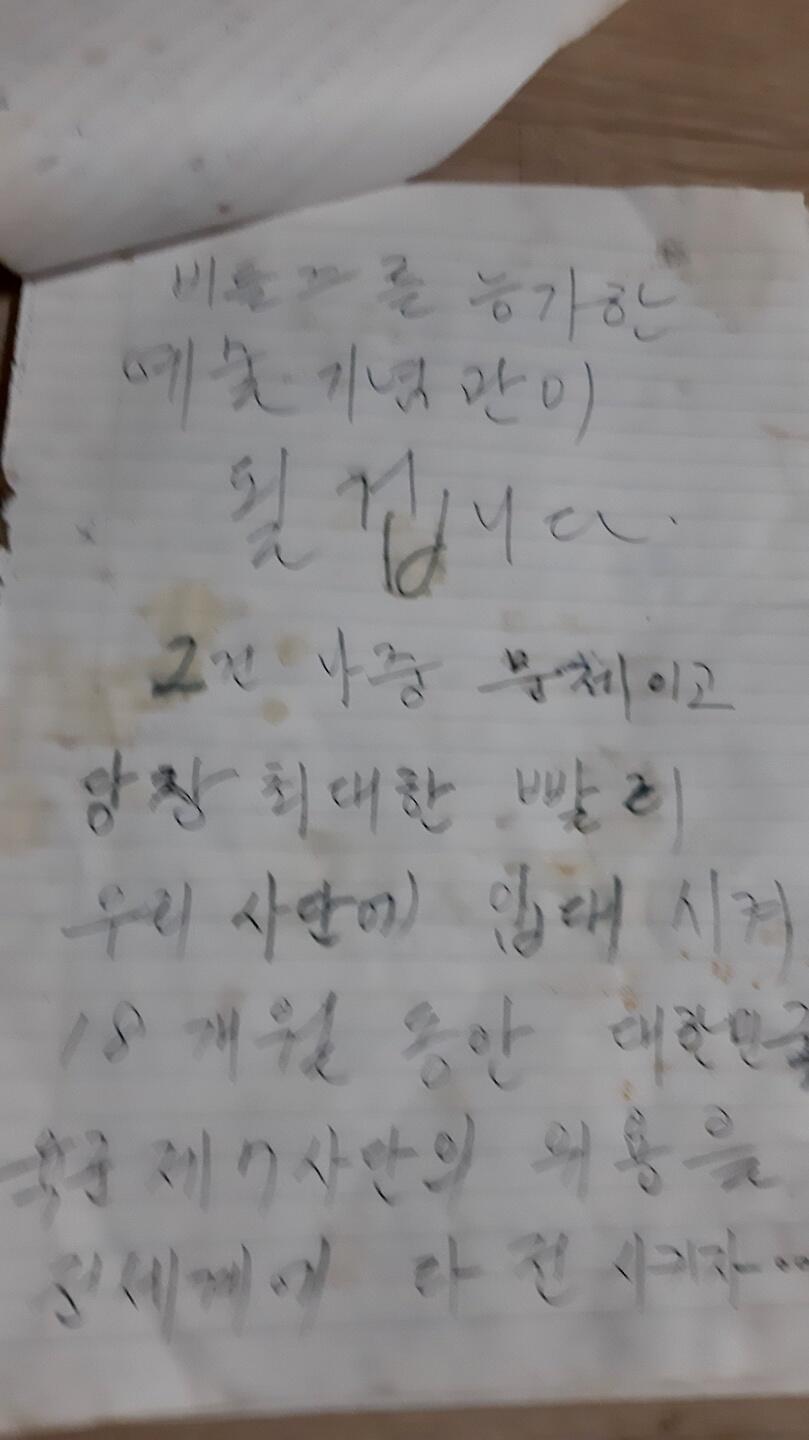 비틀즈를 능가한
예술기념관이
될겁니다.
2건 나중 문제이고
당장 최대한 빨리
우리 사단에 입대 시켜
18개월 동안 대한민국
육군 제7사단의 위용을
전세계에 다 전